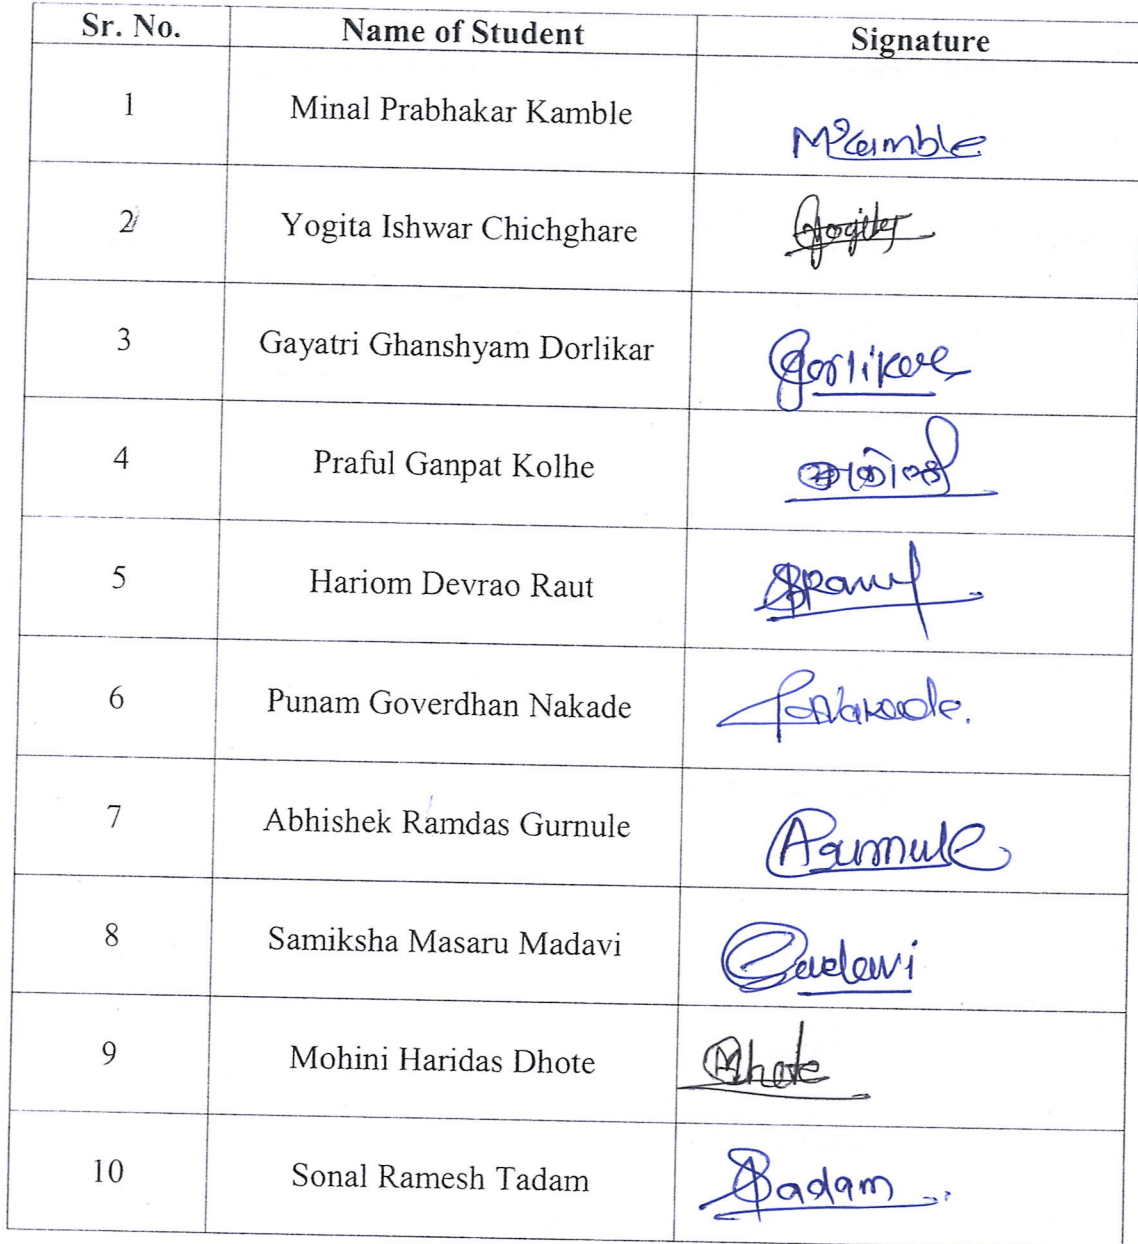 Sr. No. Name of Student Signature
1 Minal Prabhakar Kamble Mkamble
2 Yogita Ishwar Chichghare Yogita
3 Gayatri Ghanshyam Dorlikar Gorlikar
4 Praful Ganpat Kolhe
5 Hariom Devrao Raut Raut
6 Punam Goverdhan Nakade Nakade.
7 Abhishek Ramdas Gurnule Agurnule
8 Samiksha Masaru Madavi
9 Mohini Haridas Dhote Dhote
10 Sonal Ramesh Tadam Tadam